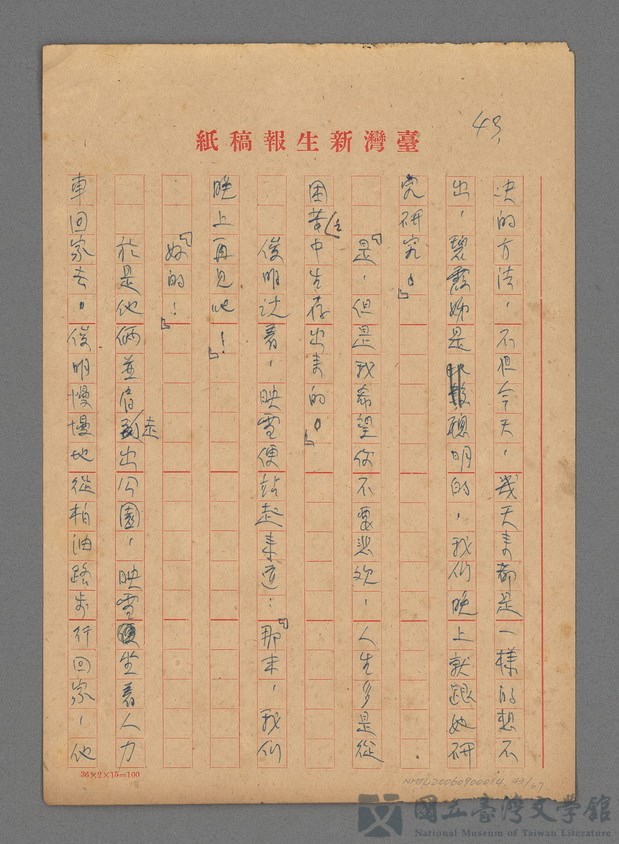 43.
紙稿報生新灣臺
决的方法，不但今天，幾天来都是一樣的想不
出，碧霞姊是聰明的，我們晚上就跟她研
究研究。』
『是，但是我希望你不要悲观，人生多是從
困苦中生存出来的。』
俊明说着，映雪便站起来道：『那末，我们
晚上再見吧！』
『好的！』
於是他倆並肩走出公園，映雪便坐着人力
車回家去。俊明慢慢地從柏油路步行回家，他
36×2×15=100
國立臺灣文学館
National Museum of Taiwan Literature